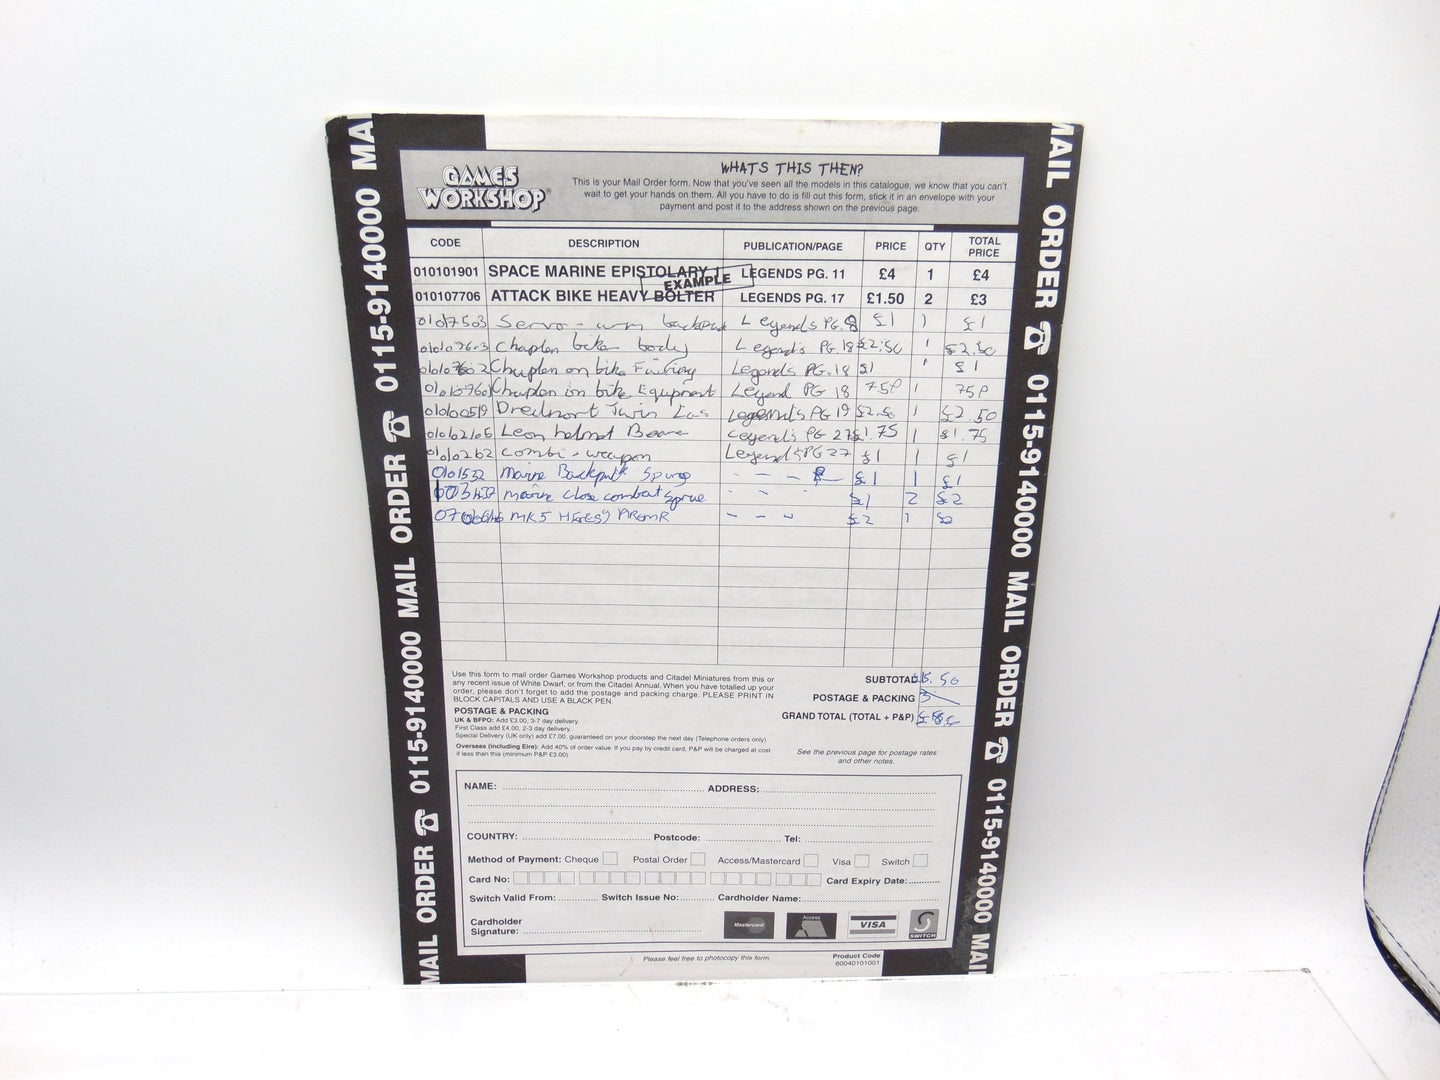 MAIL ORDER 0115-9140000 MAIL ORDER 0115-9140000 MAIL
GAMES WORKSHOP®
WHATS THIS THEN?
This is your Mail Order form. Now that you've seen all the models in this catalogue, we know that you can't
wait to get your hands on them. All you have to do is fill out this form, stick it in an envelope with your
payment and post it to the address shown on the previous page.
CODE DESCRIPTION PUBLICATION/PAGE PRICE QTY TOTAL PRICE
010101901 SPACE MARINE EPISTOLARY 1 LEGENDS PG. 11 £4 1 £4
EXAMPLE
010107706 ATTACK BIKE HEAVY BOLTER LEGENDS PG. 17 £1.50 2 £3
Servo-arm backpack Legends PG. 8 £1 1 £1
Chaplen bike body Legends PG. 18 £2.50 1 £2.50
Chaplen on bike Fairing Legends PG. 18 £1 1 £1
Chaplen on bike Equipment Legend PG 18 75P 1 75P
Twin Las Legends PG 19 £2.50 1 £2.50
helmet Legends PG 27 £1.75 1 £1.75
combi-weapon Legends PG 27 £1 1 £1
Marine Backpack £1 1 £1
marine close combat sprue £1 2 £2
MK5 Heresy £2 1
Use this form to mail order Games Workshop products and Citadel Miniatures from this or
any recent issue of White Dwarf, or from the Citadel Annual. When you have totalled up your
order, please don't forget to add the postage and packing charge. PLEASE PRINT IN
BLOCK CAPITALS AND USE A BLACK PEN.
SUBTOTAL £15.50
POSTAGE & PACKING 3
GRAND TOTAL (TOTAL + P&P)
POSTAGE & PACKING
UK & BFPO: Add £3.00, 3-7 day delivery.
First Class add £4.00, 2-3 day delivery.
Special Delivery (UK only) add £7.00, guaranteed on your doorstep the next day (Telephone orders only)
Overseas (including Eire): Add 40% of order value. If you pay by credit card, P&P will be charged at cost
if less than this (minimum P&P £3.00).
See the previous page for postage rates
and other notes.
NAME: ADDRESS:
COUNTRY: Postcode: Tel:
Method of Payment: Cheque Postal Order Access/Mastercard Visa Switch
Card No: Card Expiry Date:
Switch Valid From: Switch Issue No: Cardholder Name:
Cardholder
Signature:
Mastercard Access VISA SWITCH
Please feel free to photocopy this form.
Product Code
60040101001
MAIL ORDER 0115-9140000 MAIL ORDER 0115-9140000 MAIL